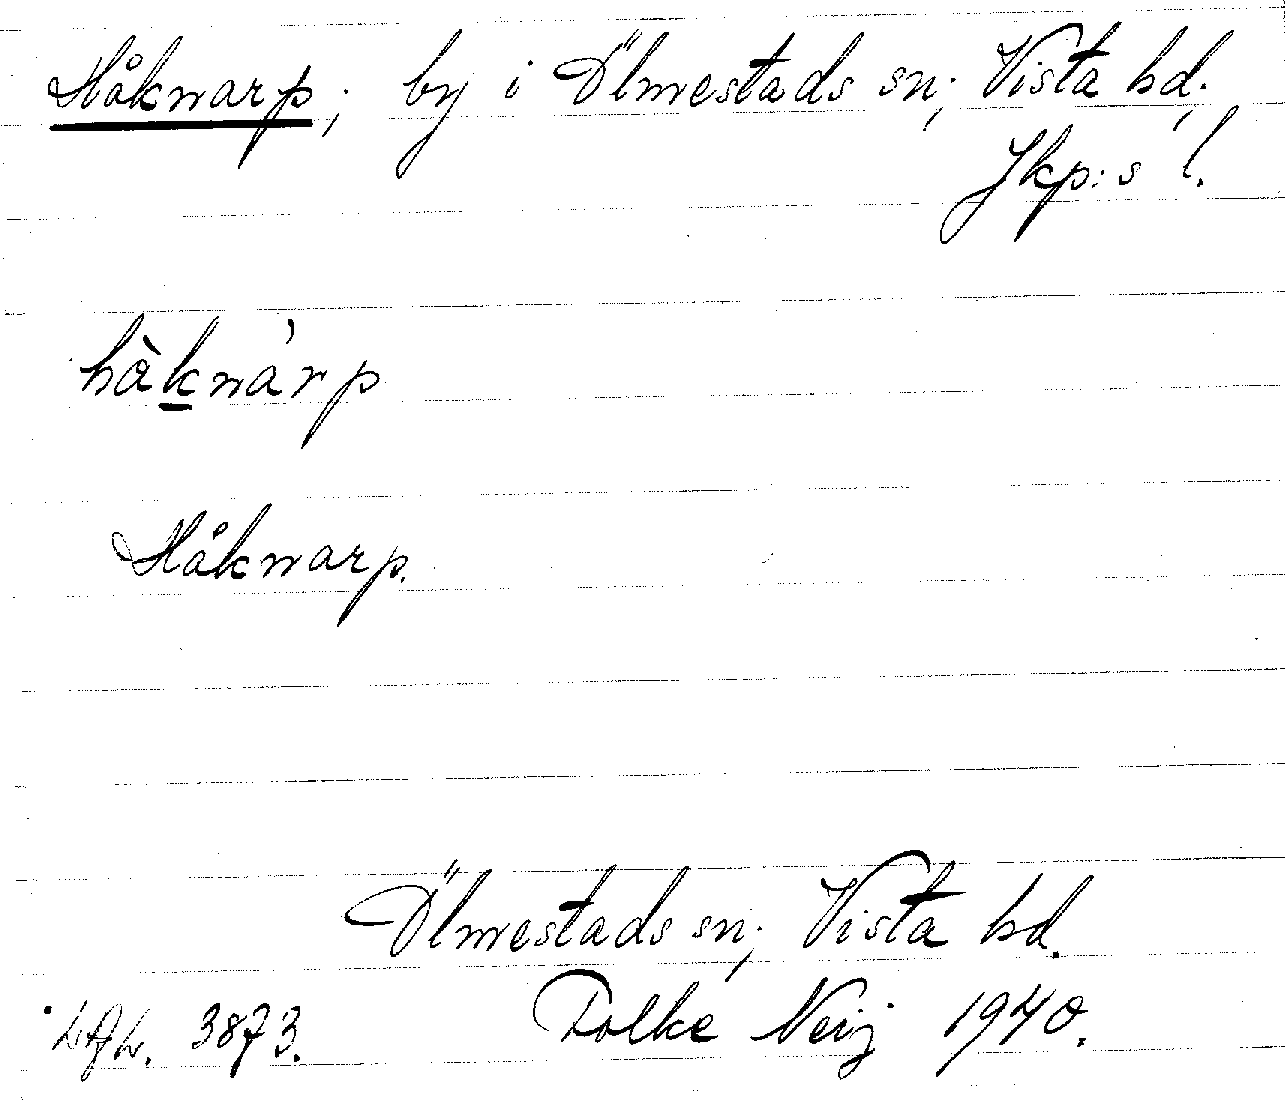 Håknarp; by i Ölmestads sn; Vista hd.
Jkp:s l.
hàknárp
Håknarp.
Ölmestads sn; Vista hd.
Folke Neij 1940.
3873.